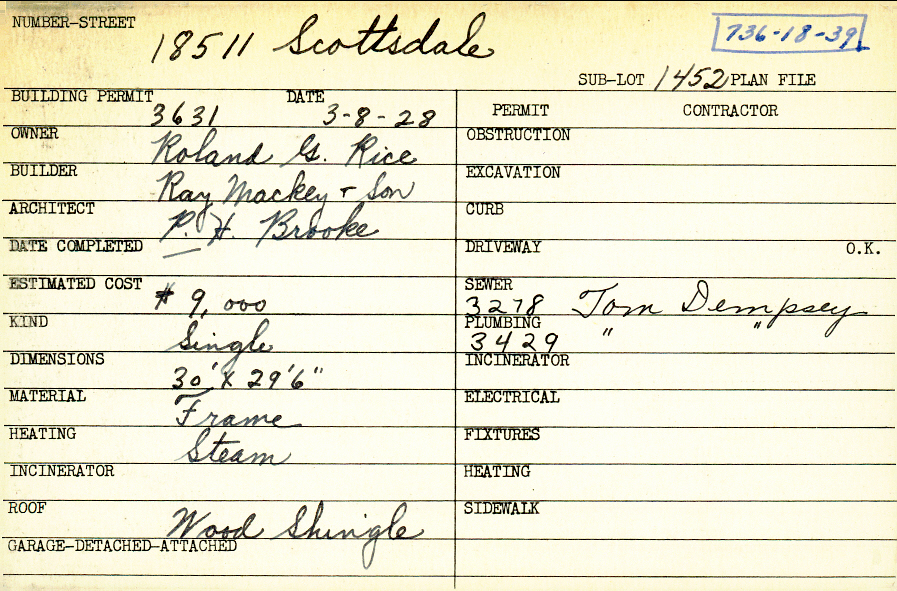 NUMBER-STREET
18511 Scottsdale
736-18-39
SUB-LOT 1452 PLAN FILE
BUILDING PERMIT DATE
3631 3-8-28
OWNER
Roland G. Rice
BUILDER
Ray Mackey + Son
ARCHITECT
P. H. Brooke
DATE COMPLETED
—
ESTIMATED COST
$ 9,000
KIND
Single
DIMENSIONS
30' X 29'6"
MATERIAL
Frame
HEATING
Steam
INCINERATOR
ROOF
Wood Shingle
GARAGE-DETACHED-ATTACHED
PERMIT CONTRACTOR
OBSTRUCTION
EXCAVATION
CURB
DRIVEWAY O.K.
SEWER
3278 Tom Dempsey
PLUMBING
3429 " "
INCINERATOR
ELECTRICAL
FIXTURES
HEATING
SIDEWALK